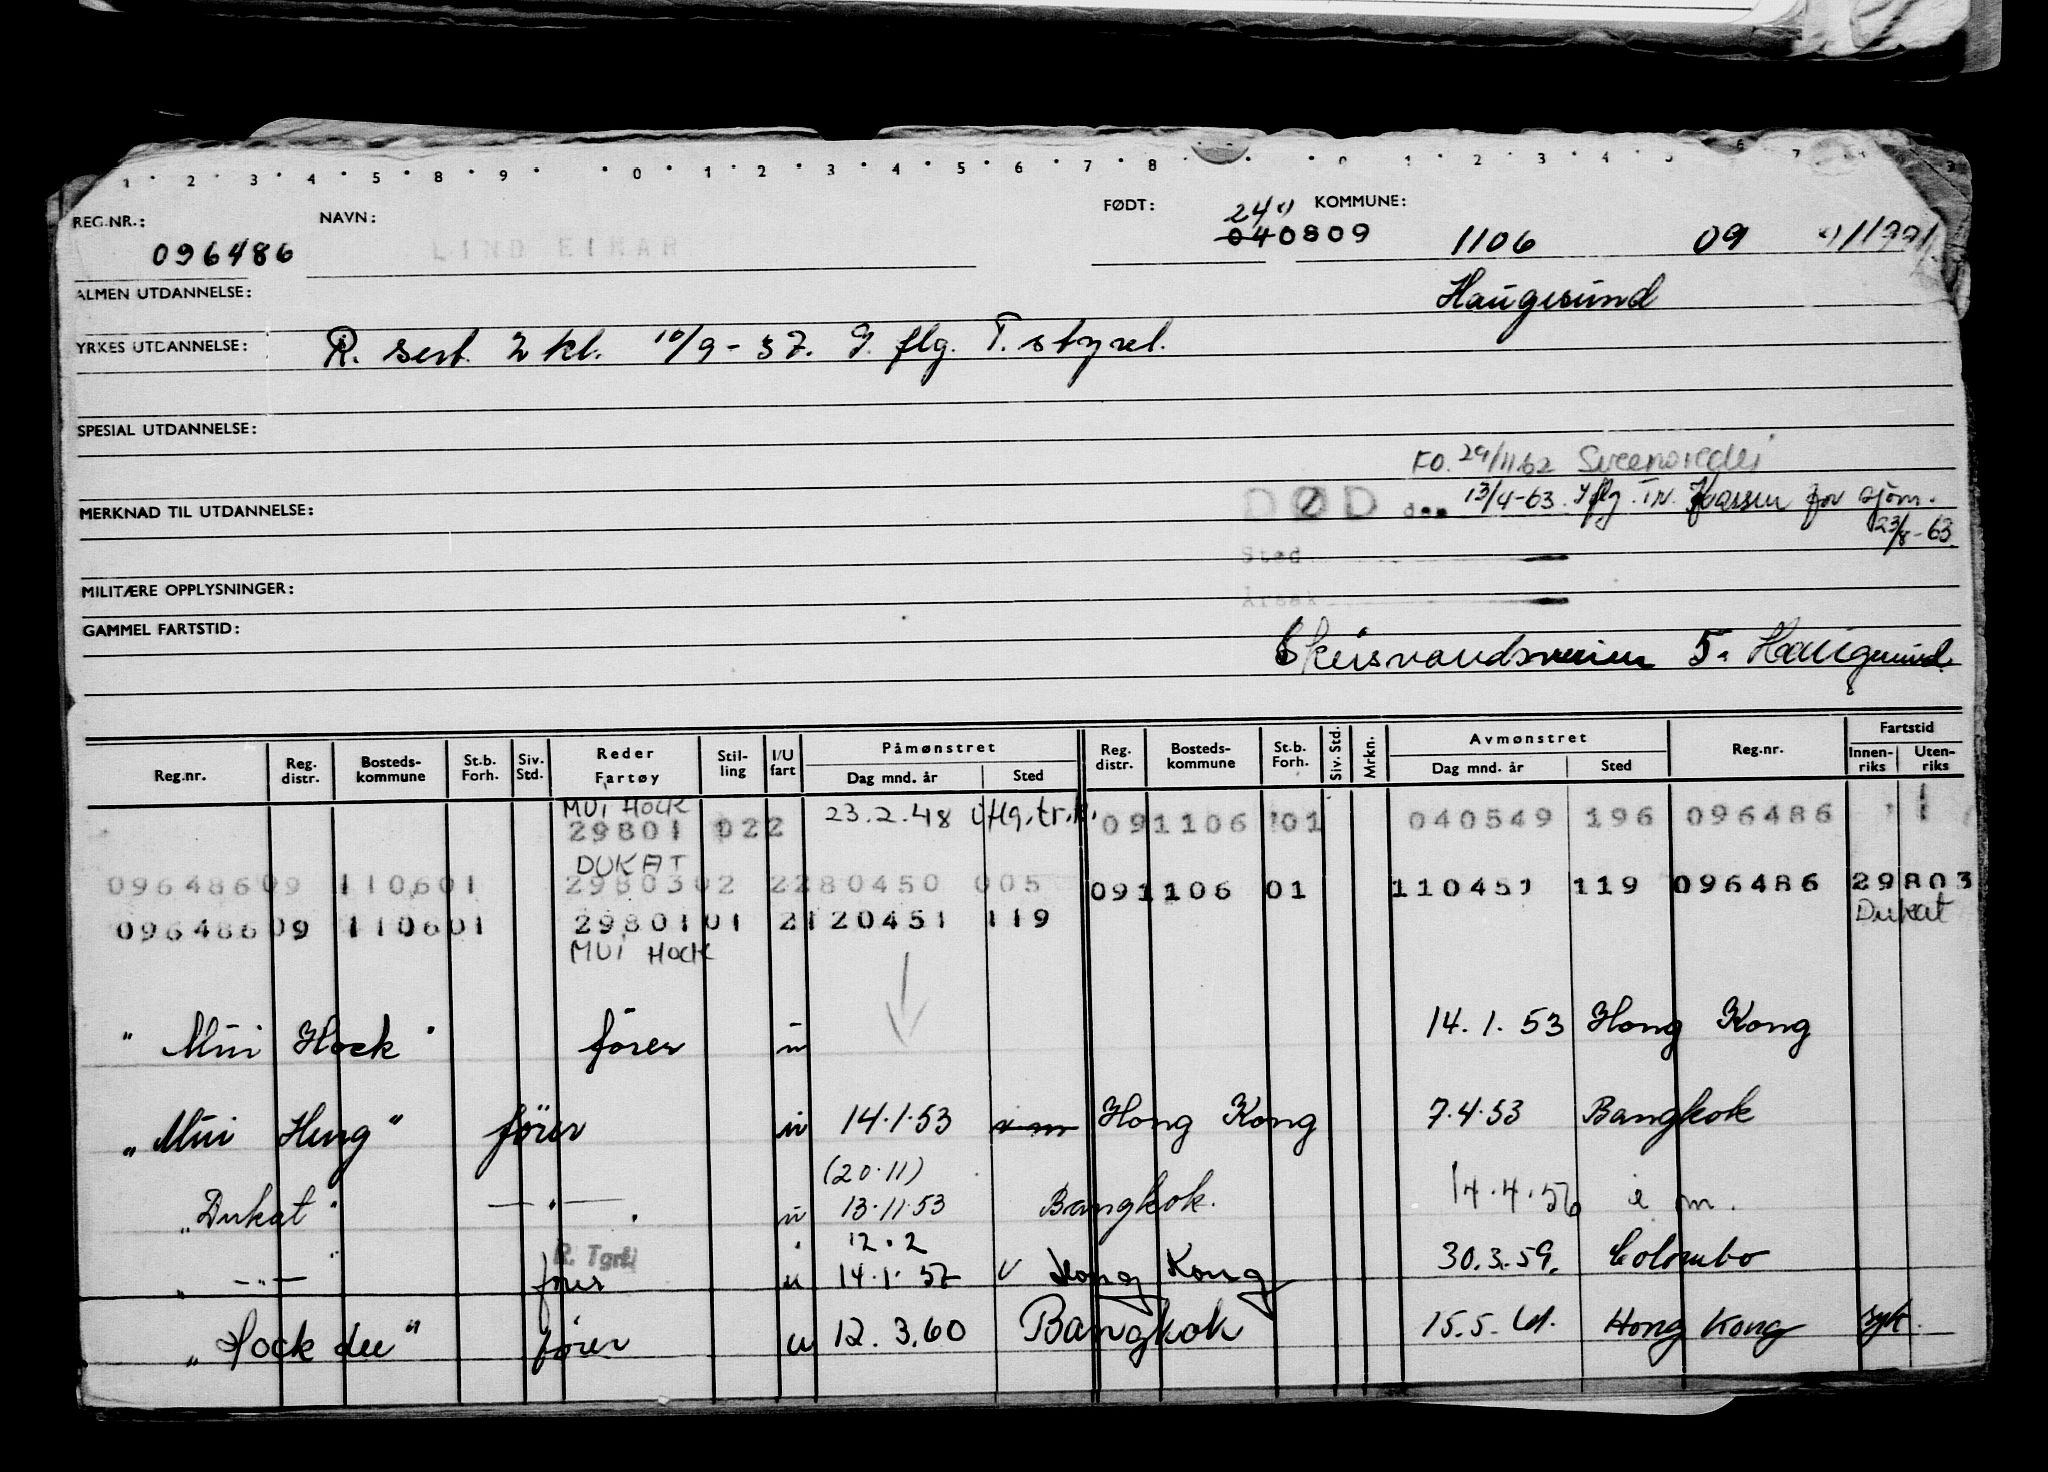 1 2 3 4 5 8 9 0 1 2 3 4 5 6 7 8 0 1 2 3 4 5 6 7 9
REG.NR.: NAVN: FØDT: 24 KOMMUNE:
096486 LIND EINAR 040809 1106 09
ALMEN UTDANNELSE: Haugesund
YRKES UTDANNELSE: R. sert. 2 kl. 10/9-37. I. flg. T. styrel.
SPESIAL UTDANNELSE:
FO. 29/11.62
MERKNAD TIL UTDANNELSE: DØD den 13/4-63. I flg. Tr. Kassen for sjøm.
23/8-63
Sted
MILITÆRE OPPLYSNINGER:
Årsak
GAMMEL FARTSTID:
Skeisvandsveien 5. Haugesund.
Reg.nr. Reg. distr. Bosteds- kommune St.b. Forh. Siv. Std. Reder Fartøy Stil- ling I/U fart Påmønstret Dag mnd. år Sted Reg. distr. Bosteds- kommune St.b. Forh. Siv. Std. Mrkn. Avmønstret Dag mnd. år Sted Reg.nr. Fartstid Innen- riks Uten- riks
MUI HOCK 23.2.48 iflg.tr.k.
29801 022 091106 01 040549 196 096486
DUKAT
09648609 110601 2980302 2280450 005 091106 01 110451 119 096486 29803
Dukat
09648609 110601 2980101 2120451 119
MUI HOCK
"Mui Hock" fører u 14.1.53 Hong Kong
"Mui Heng" fører u 14.1.53 Hong Kong 7.4.53 Bangkok
(20.11)
"Dukat" —"— u 13.11.53 Bangkok. 14.4.56 i m.
12.2
R. Tgrf.
" —"— " fører u 14.1.57 v Hong Kong 30.3.59. Colombo
"Hock Lee" fører u 12.3.60 Bangkok 15.5.61. Hong Kong syk.